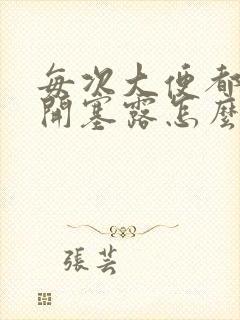 每次大便都
開塞露怎麼
張芸